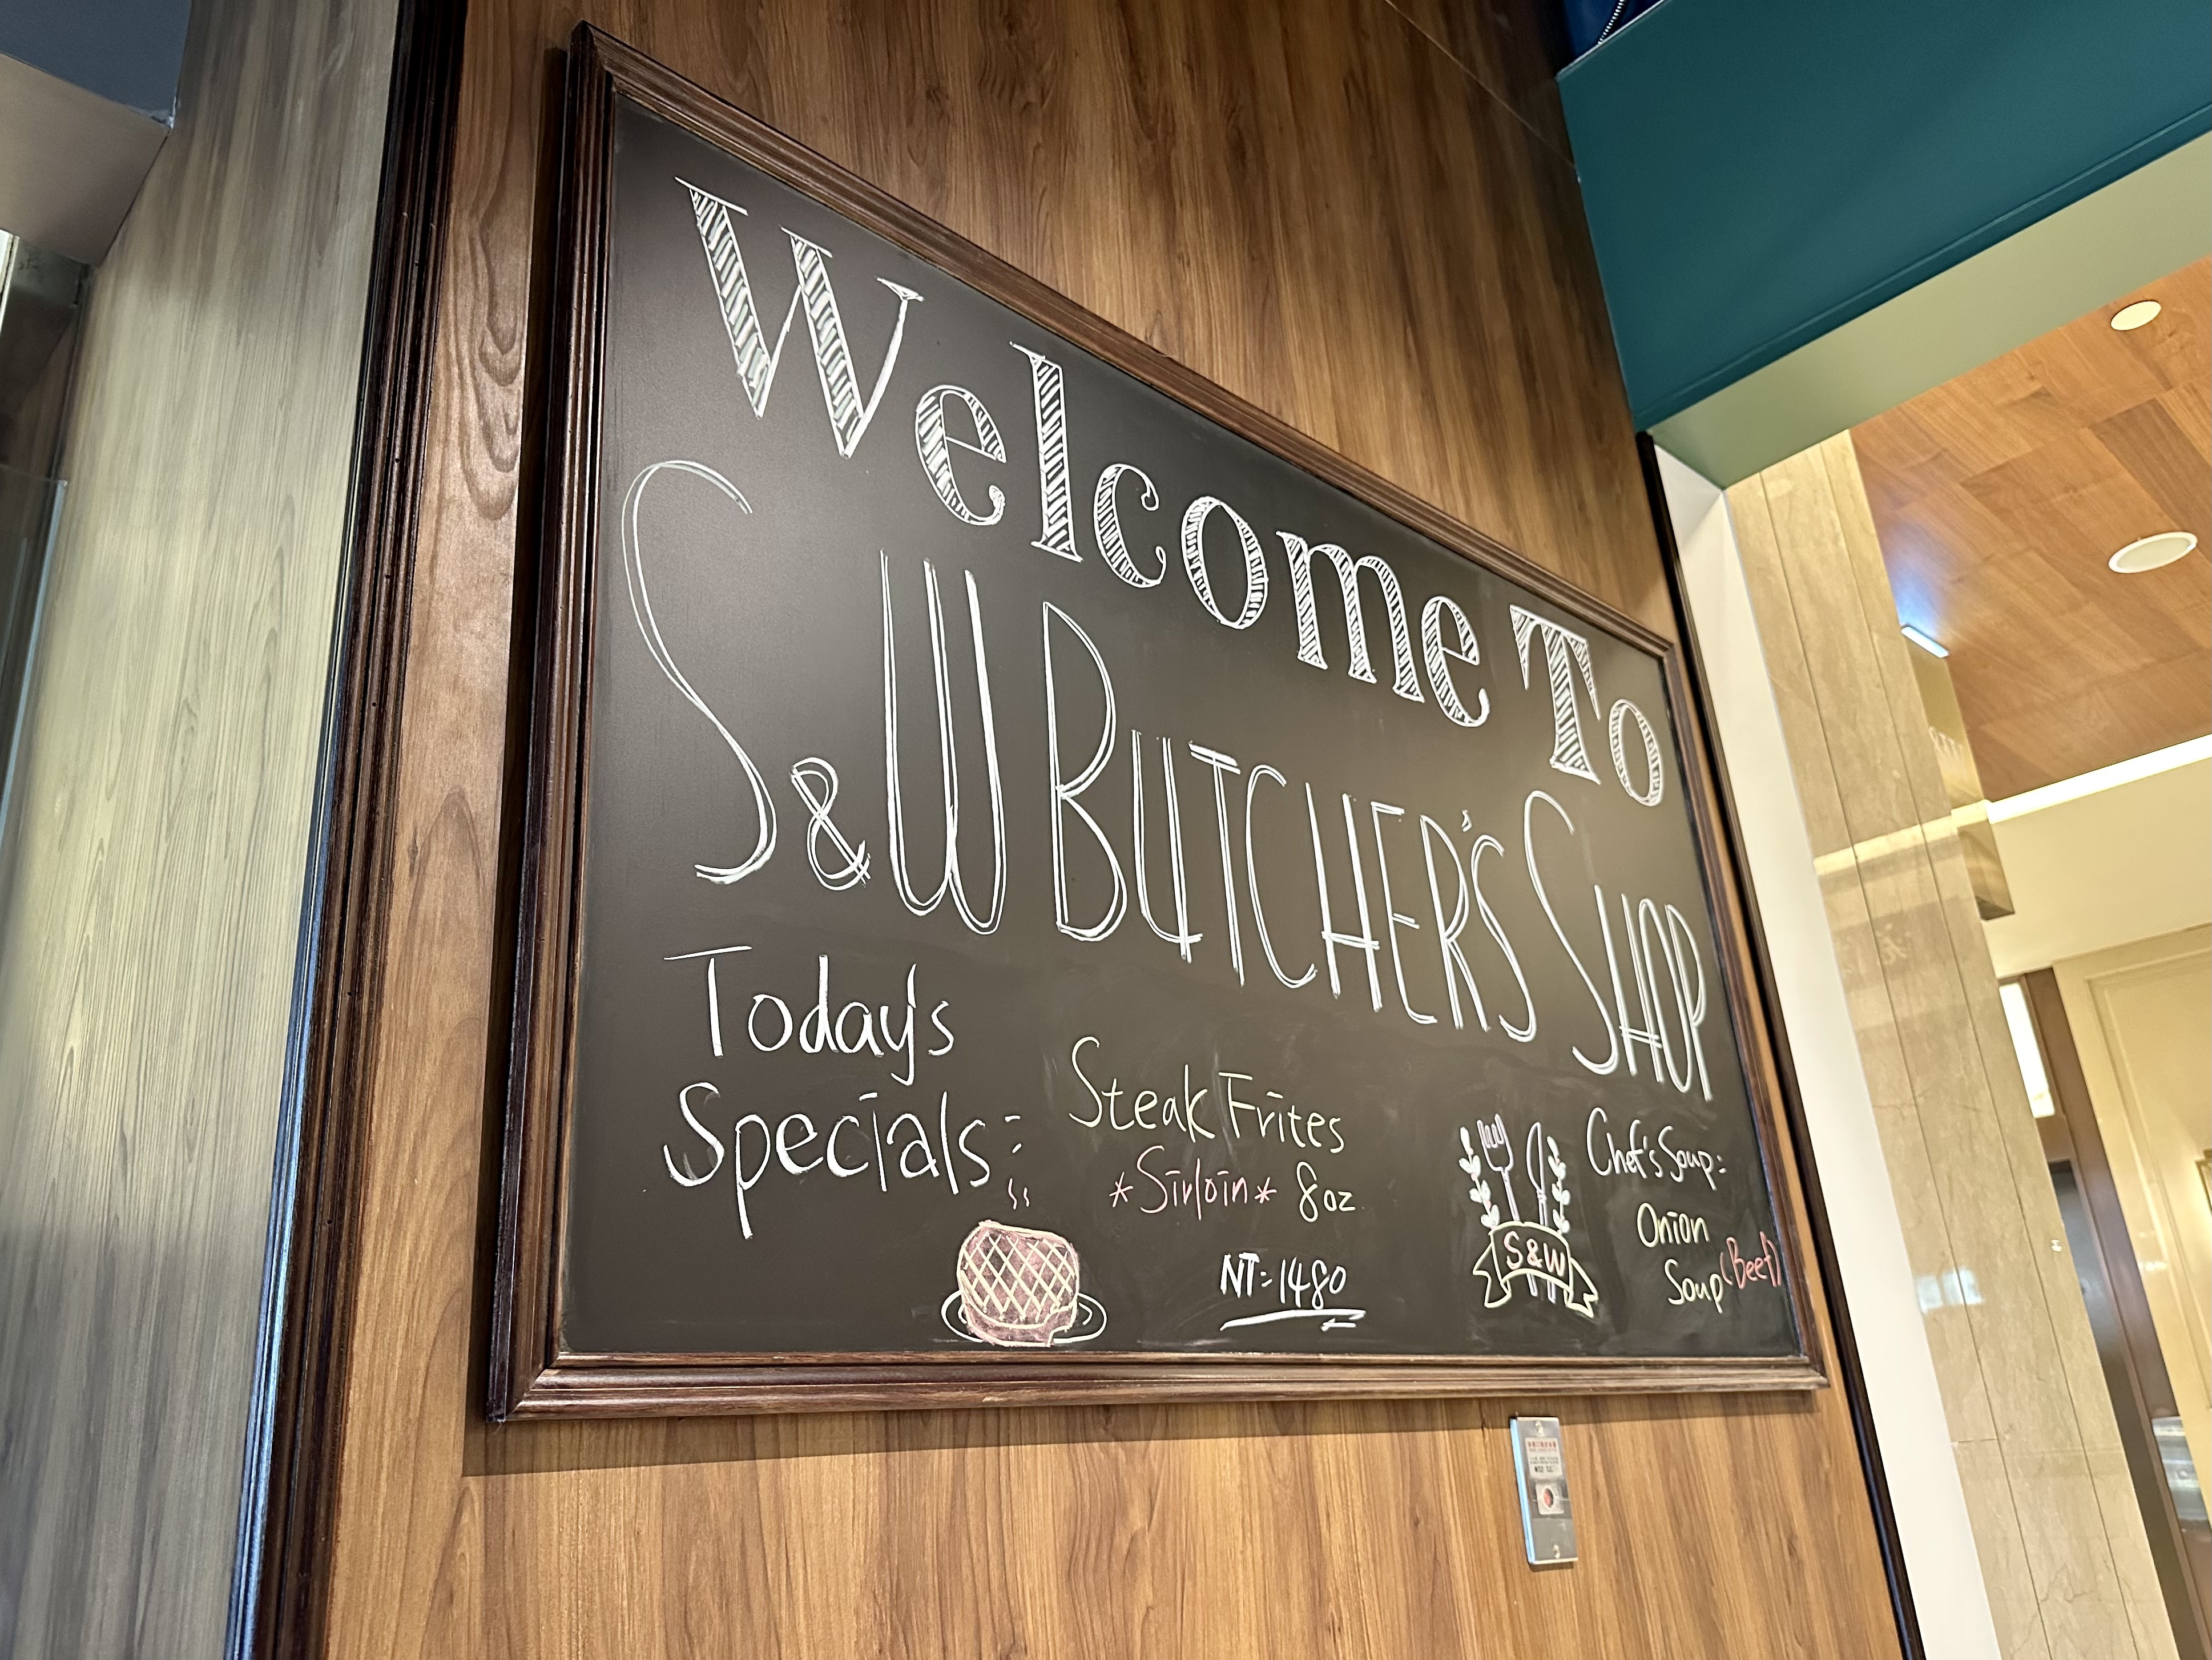 Welcome To
S&W BUTCHER'S SHOP
Today's
Specials:
Steak Frites
*Sirloin* 8oz
NT:1480
S&W
Chef's Soup:
Onion
Soup (Beef)